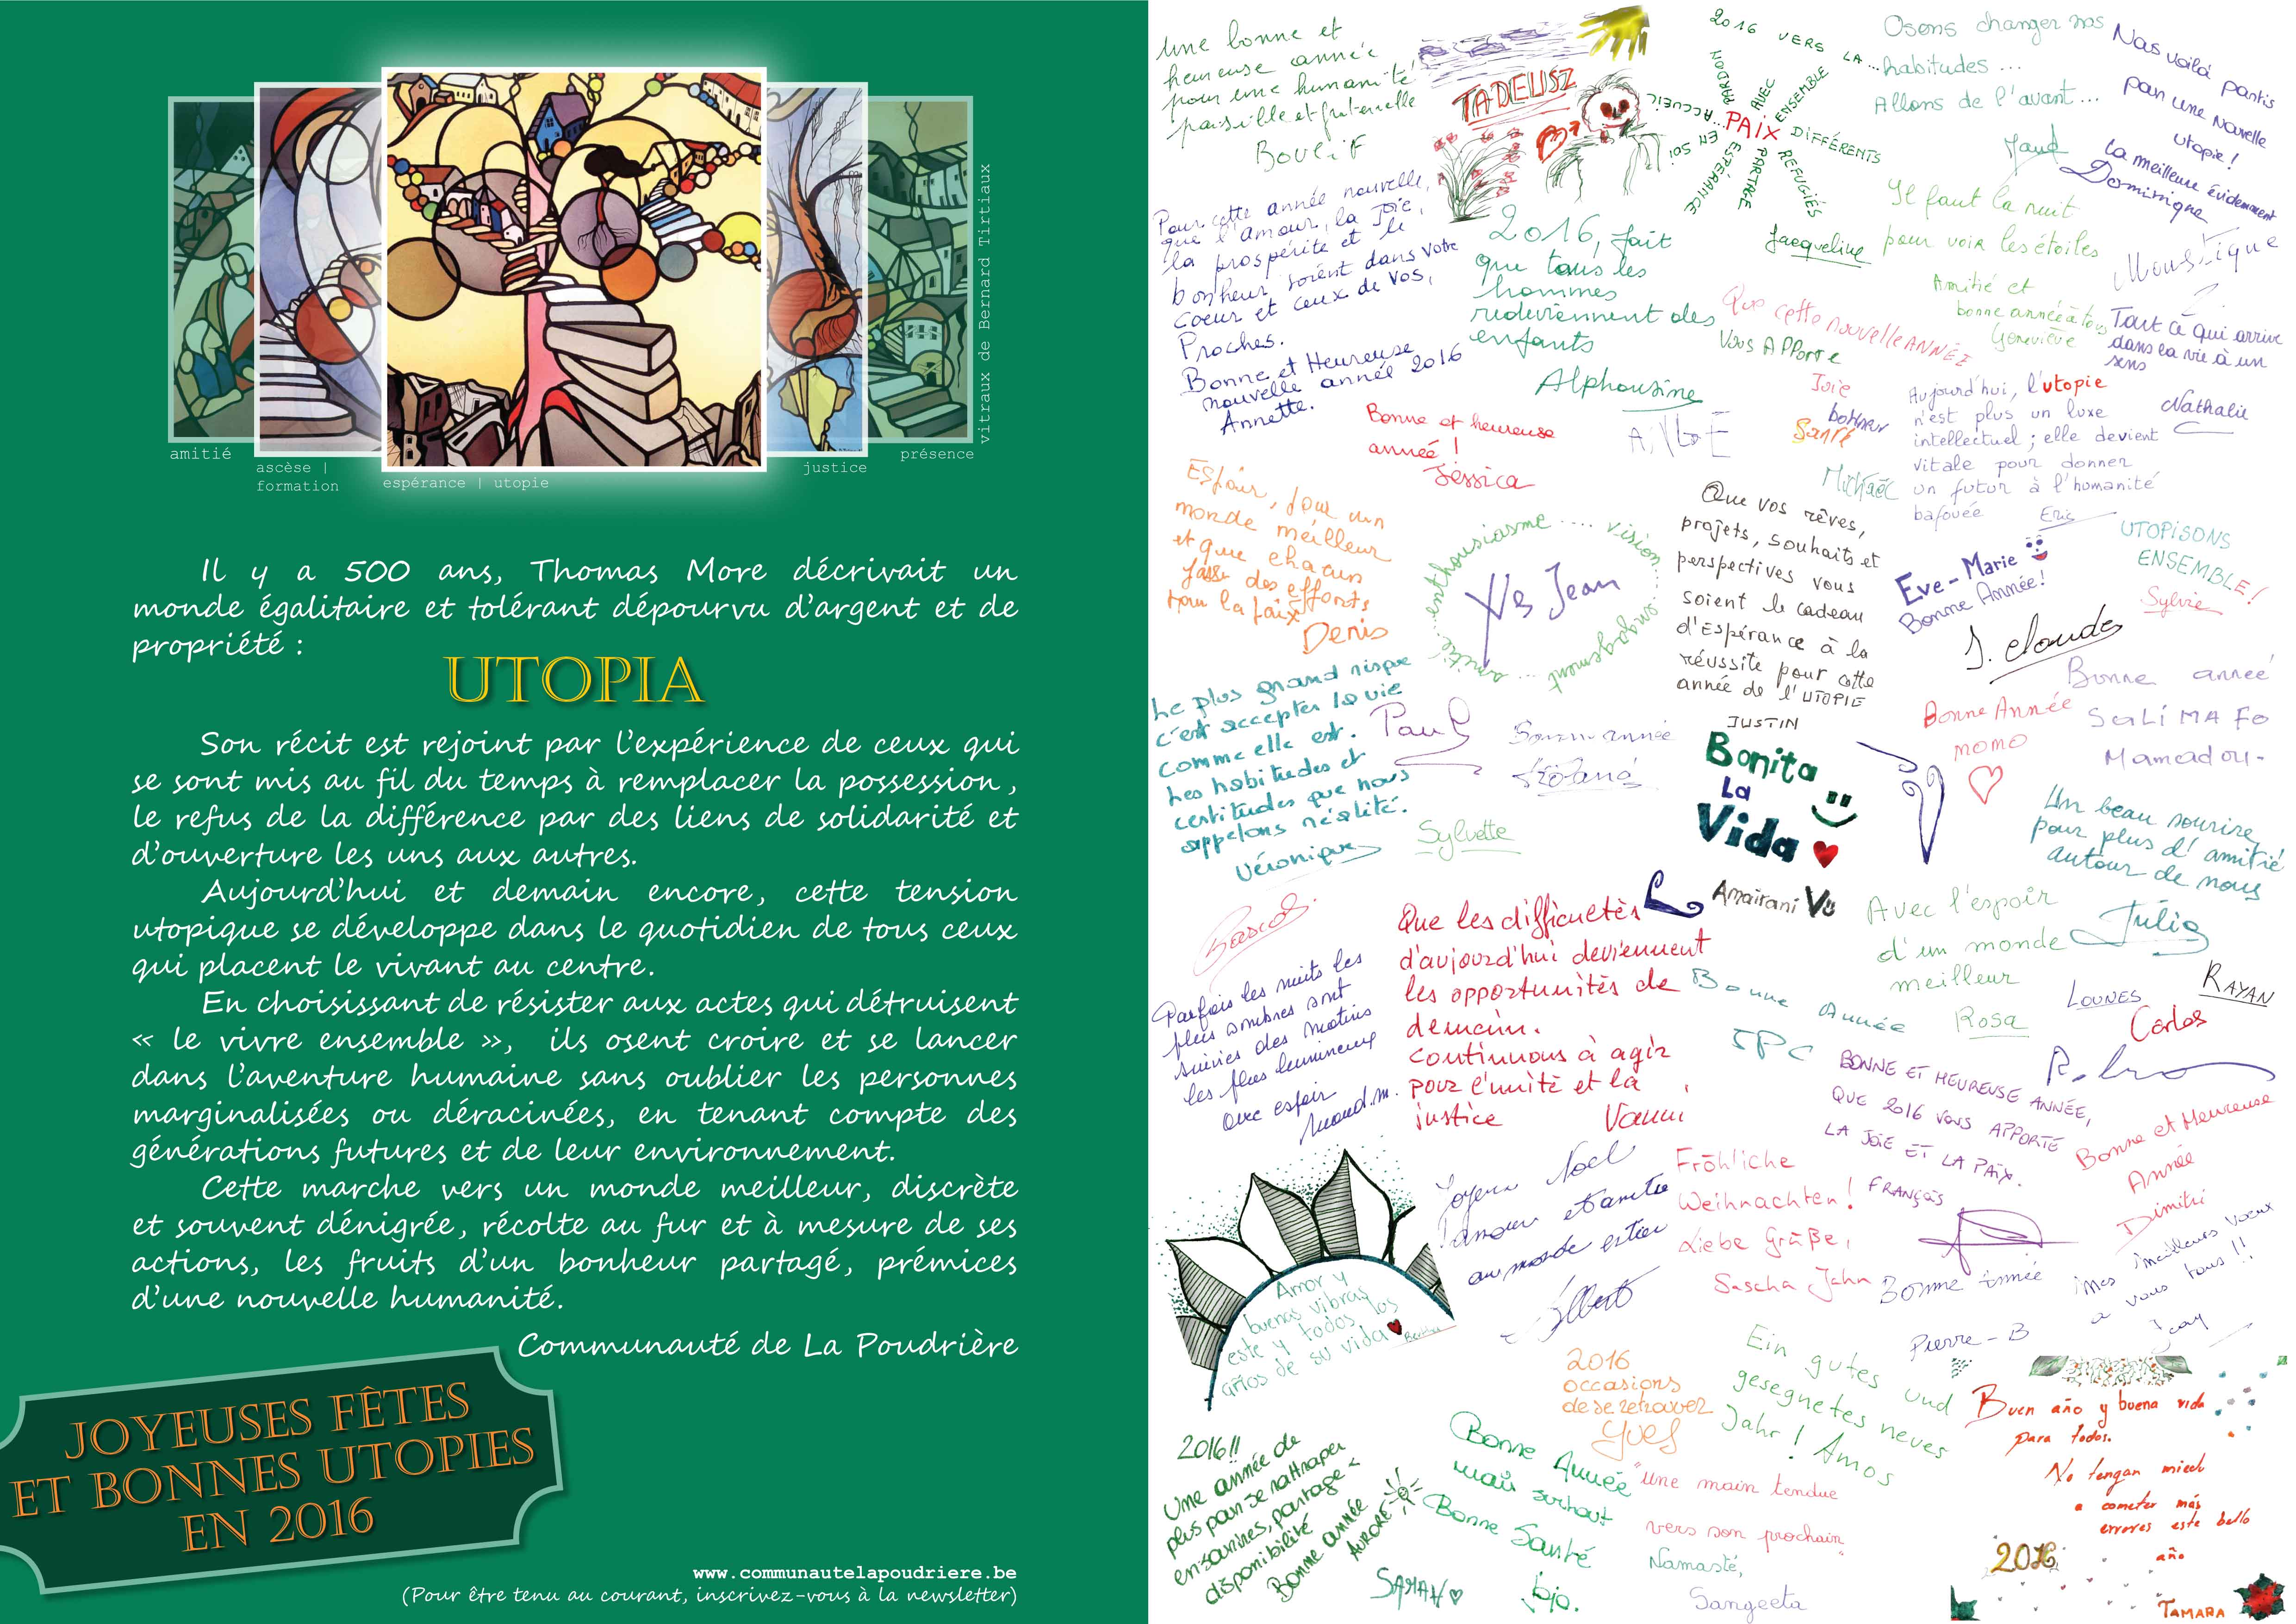 vitraux de Bernard Tirtiaux
amitié
ascèse |
formation
espérance | utopie
justice
présence
Il y a 500 ans, Thomas More décrivait un
monde égalitaire et tolérant dépourvu d'argent et de
propriété :
UTOPIA
Son récit est rejoint par l'expérience de ceux qui
se sont mis au fil du temps à remplacer la possession,
le refus de la différence par des liens de solidarité et
d'ouverture les uns aux autres.
Aujourd'hui et demain encore, cette tension
utopique se développe dans le quotidien de tous ceux
qui placent le vivant au centre.
En choisissant de résister aux actes qui détruisent
« le vivre ensemble », ils osent croire et se lancer
dans l'aventure humaine sans oublier les personnes
marginalisées ou déracinées, en tenant compte des
générations futures et de leur environnement.
Cette marche vers un monde meilleur, discrète
et souvent dénigrée, récolte au fur et à mesure de ses
actions, les fruits d'un bonheur partagé, prémices
d'une nouvelle humanité.
Communauté de La Poudrière
JOYEUSES FÊTES
ET BONNES UTOPIES
EN 2016
www.communautelapoudriere.be
(Pour être tenu au courant, inscrivez-vous à la newsletter)
Une bonne et
heureuse année
pour une humanité
paisible et fraternelle
Boulif
TADEUSZ
2016 VERS LA ...
PAIX
PARDON
AVEC
ENSEMBLE
DIFFÉRENTS
REFUGIÉS
PARTAGE
ESPÉRANCE
EN SOI
ACCUEIL
Jacqueline
Osons changer nos
habitudes ...
Allons de l'avant...
Maud
Nous voilà partis
pour une nouvelle
utopie!
La meilleure évidemment
Dominique
Il faut la nuit
pour voir les étoiles
Moustique
Pour cette année nouvelle,
que l'amour, la Joie,
la prospérité et le
bonheur soient dans votre
coeur et ceux de vos,
Proches.
Bonne et Heureuse
nouvelle année 2016
Annette.
2016, fait
que tous les
hommes
redeviennent des
enfants
Alphonsine
Amitié et
bonne année à tous
Geneviève
Tout ce qui arrive
dans la vie à un
sens
Nathalie
Que cette nouvelle ANNÉE
Vous APPorte
Joie
bonheur
Santé
Michaël
Bonne et heureuse
année !
Jessica
ANGE
Aujourd'hui, l'utopie
n'est plus un luxe
intellectuel ; elle devient
vitale pour donner
un futur à l'humanité
bafouée
Eric
Espoir, pour un
monde meilleur
et que chacun
fasse des efforts
pour la paix
Denis
enthousiasme .... vision.... engagement ... amitié...
Yves Jean
Que vos rêves,
projets, souhaits et
perspectives vous
soient le cadeau
d'Espérance à la
réussite pour cette
année de l'UTOPIE
JUSTIN
Eve-Marie
Bonne Année!
UTOPISONS
ENSEMBLE!
Sylvie
J. Claude
Le plus grand risque
c'est accepter la vie
comme elle est.
Les habitudes et
certitudes que nous
appelons réalité.
Véronique
Paul
Bonne année
Sylvette
Bonita
La
Vida
Amairani
Bonne Année
momo
Bonne année
SALIMAFO
Mamadou-
Un beau sourire,
pour plus d'amitié
autour de nous
Julio
Que les difficultés
d'aujourd'hui deviennent
les opportunités de
demain.
Continuons à agir
pour l'unité et la
justice
Vanni
Avec l'espoir
d'un monde
meilleur
Rosa
LOUNES
RAYAN
Carlos
Parfois les nuits les
plus sombres sont
suivies des matins
les plus lumineux
avec espoir
Bonne Année
JPC
BONNE ET HEUREUSE ANNÉE,
QUE 2016 VOUS APPORTE
LA JOIE ET LA PAIX.
FRANÇOIS
Bonne et Heureuse
Année
Dimitri
Joyeux Noel
amour et amitié
au monde entier
Albert
Fröhliche
Weihnachten!
Liebe Grüße,
Sascha Jahn
Bonne année
Pierre-B
Mes meilleurs voeux
a vous tous !!
Amor y
buenas vibras
este y todos los
años de su vida
2016
occasions
de se retrouver
Yves
Ein gutes und
gesegnetes neues
Jahr! Amos
Buen año y buena vida
para todos.
No tengan miedo
a cometer más
errores este bello
año
2016
TAMARA
2016!!
Une année de
plus pour se rattraper
en sourires, partage
disponibilité
Bonne année
AURORE
SARAH
Bonne Année
mais surtout
Bonne Santé
Jojo.
"Une main tendue
vers son prochain"
Namasté,
Sangeeta